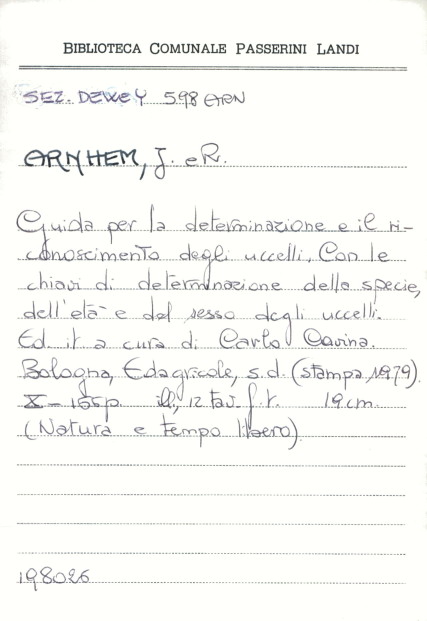 BIBLIOTECA COMUNALE PASSERINI LANDI
SEZ. DEWEY 598 ARN
ARNHEM, J. e R.
Guida per la determinazione e il ri-
conoscimento degli uccelli. Con le
chiavi di determinazione della specie,
dell'età e del sesso degli uccelli.
Ed. it a cura di Carlo Cavina.
Bologna, Edagricole, s.d. (stampa 1979).
X-155p. ill., 12 tav. f.t. 19 cm.
(Natura e tempo libero)
198026